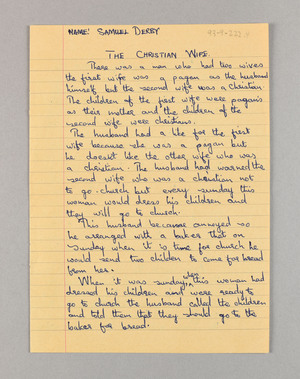 NAME: SAMUEL DERBY
93-9-222.11
THE CHRISTIAN WIFE.
There was a man who had two wives
the first wife was a pagan as the husband
himself but the second wife was a Christian.
The children of the first wife were pagans
as their mother and the children of the
second wife were christians.
The husband had a like for the first
wife because she was a pagan but
he doesn't like the other wife who was
a christian. The husband had warned the
second wife who was a christian not
to go church but every sunday this
woman would dress his children and
they will go to church.
This husband became annoyed so
he arranged with a baker that on
sunday when it is time for church he
would send two children to come for bread
from her.
When it was sunday when this woman had
dressed his children and were ready to
go to church the husband called the children
and told them that they should go to the
baker for bread.